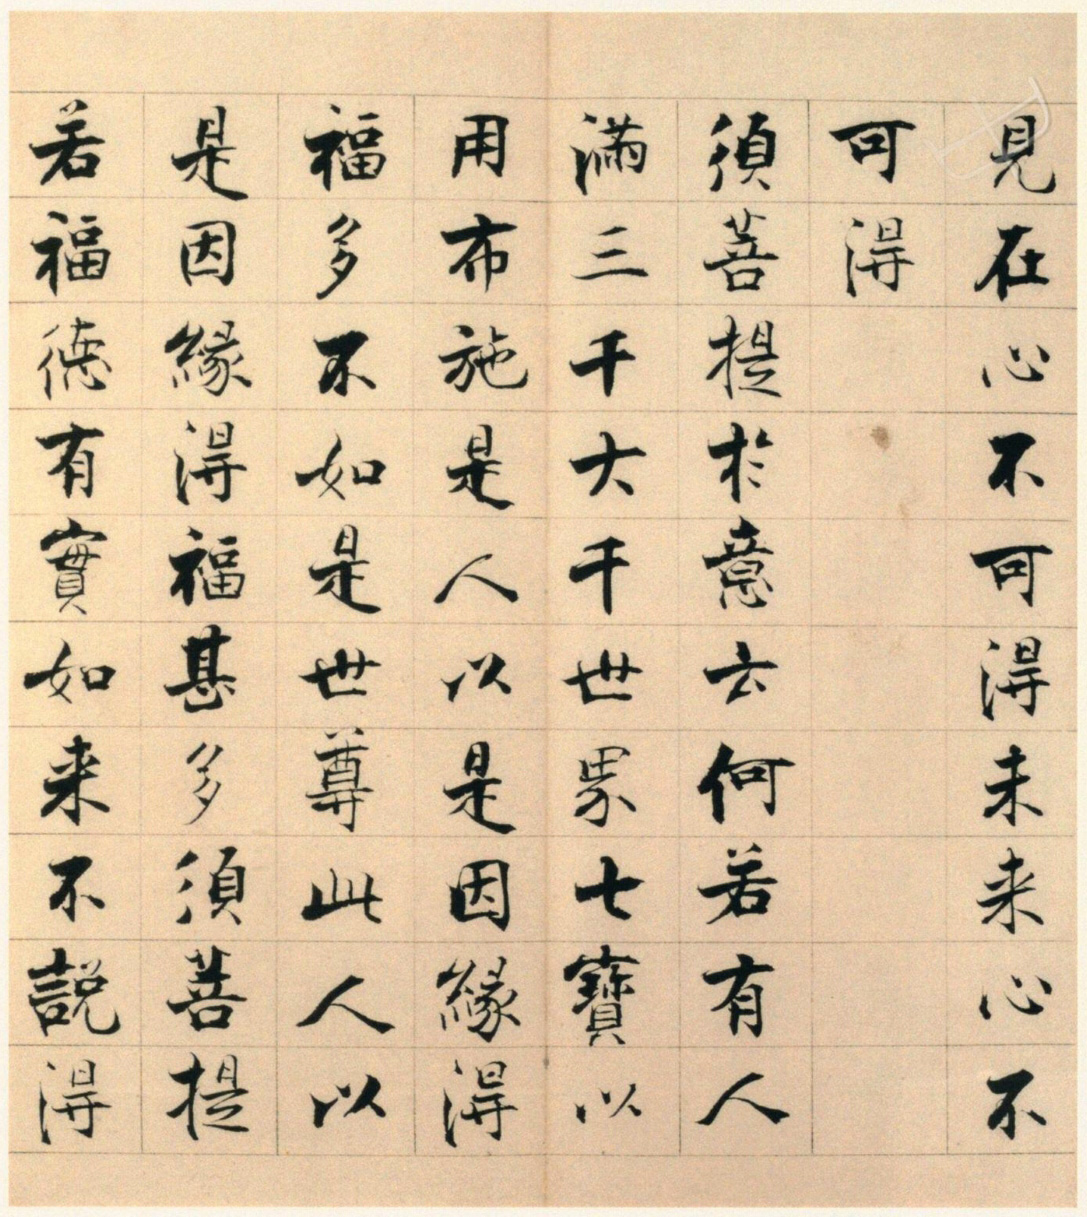 見在心不可得未来心不
可得
須菩提於意云何若有人
滿三千大千世界七寶以
用布施是人以是因緣得
福多不如是世尊此人以
是因緣得福甚多須菩提
若福德有實如来不説得